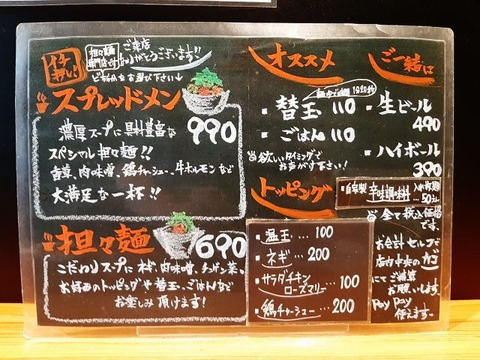 イチ押し
担々麺専門店です
ご来店
ありがとうございます!!
どちらかをお選び下さい↓
スプレッドメン
990
濃厚スープに具材豊富な
スペシャル担々麺!!
肉味噌、鶏チャーシュー、牛ホルモンなど
大満足な一杯!!
担々麺
690
こだわりスープに ネギ、肉味噌、チンゲン菜。
お好みのトッピングや替玉、ごはんなど
お楽しみ頂けます!
オススメ
替玉 110
ごはん 110
お欲しいタイミングで
お声がけ下さい!
トッピング
温玉 100
ネギ 200
サラダチキン
ローズマリー 100
鶏チャーシュー 200
ご一緒に
生ビール
490
ハイボール
390
自家製 辛味調味料
50
全て税込価格
です。
お会計セルフで
店内中央の
にてご精算
お願いします
PayPay
使えますー